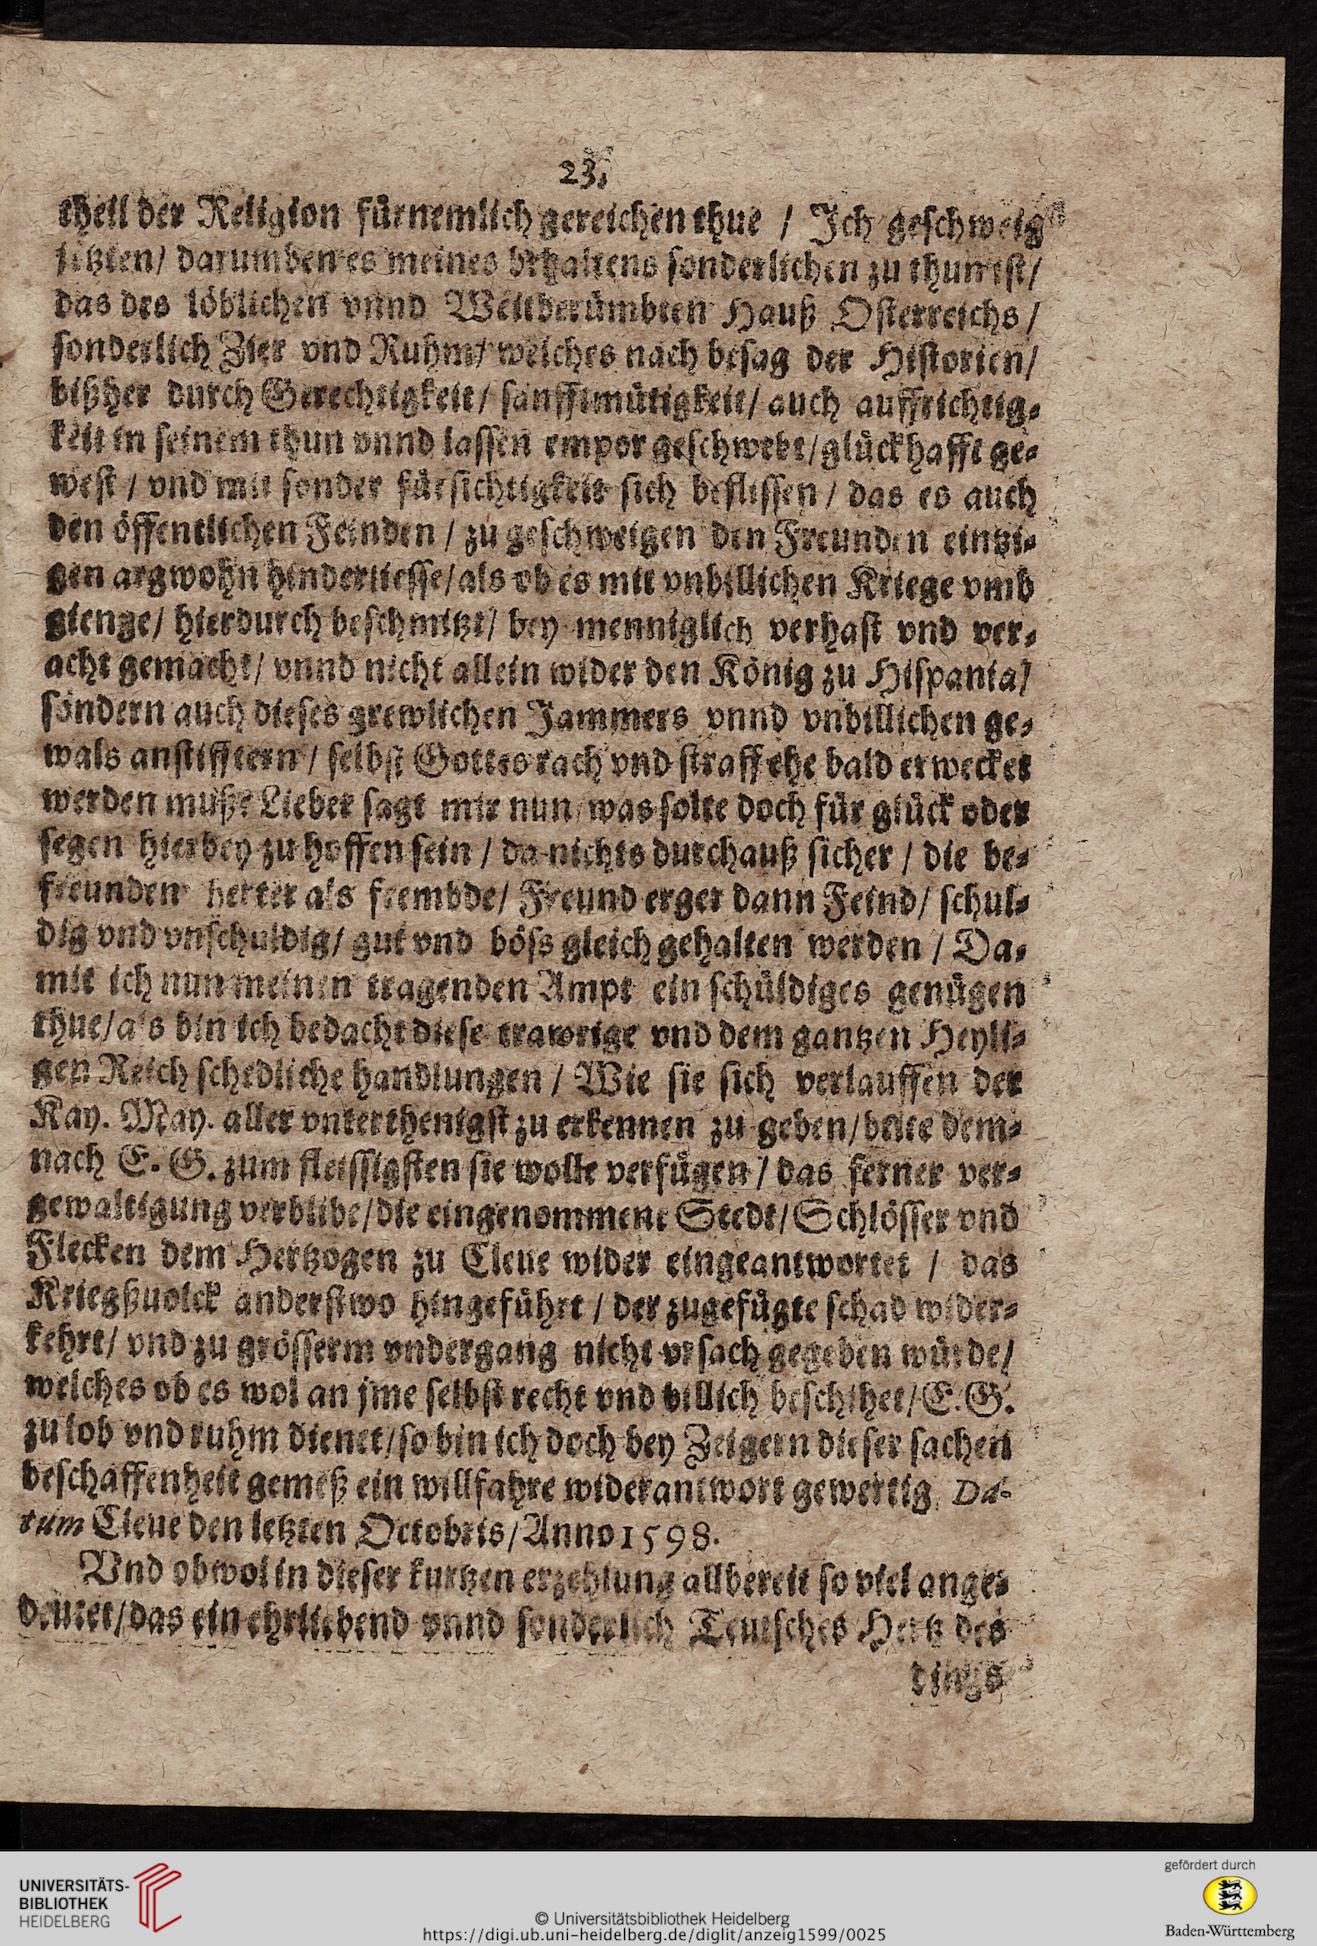 23.
theil der Religion fürnemlich gereichen thue / Ich geschweig
letzten / darumben es meines behaltens sonderlichen zu thun ist /
das des löblichen vnnd Weltberümbten Hauß Osterreichs /
sonderlich Zier vnd Ruhm / welches nach besag der Historien /
bißher durch Gerechtigkeit / sanfftmütigkeit / auch auffrichtig-
keit in seinem thun vnnd lassen empor geschwebt / glückhafft ge-
west / vnd mit sonder fürsichtigkeit sich beflissen / das es auch
den öffentlichen Feinden / zu geschweigen den Freunden eintzi-
gen argwohn hinderliesse / als ob es mit vnbillichen Kriege vmb
gienge / hierdurch beschmitzt / bey menniglich verhast vnd ver-
acht gemacht / vnnd nicht allein wider den König zu Hispania /
sondern auch dieses grewlichen Jammers vnnd vnbillichen ge-
wals anstifftern / selbst Gottes rach vnd straff ehe bald erwecket
werden muß? Lieber sagt mir nun / was solte doch für glück oder
segen hierbey zu hoffen sein / da nichts durchauß sicher / die be-
freunden herter als frembde / Freund erger dann Feind / schul-
dig vnd vnschuldig / gut vnd böss gleich gehalten werden / Da-
mit ich nun meinen tragenden Ampt ein schüldiges genügen
thue / als bin ich bedacht diese trawrige vnd dem gantzen Heyli-
gen Reich schedliche handlungen / Wie sie sich verlauffen der
Kay. May. aller vnterthenigst zu erkennen zu geben / bitte dem-
nach E. G. zum fleissigsten sie wolle verfügen / das ferner ver-
gewaltigung verblibe / die eingenommene Stedt / Schlösser vnd
Flecken dem Hertzogen zu Cleue wider eingeantwortet / das
Kriegßuolck anderstwo hingeführt / der zugefügte schad wider-
kehrt / vnd zu grösserm vndergang nicht vrsach gegeben würde /
welches ob es wol an jme selbst recht vnd billich beschihet / E. G.
zu lob vnd ruhm dienet / so bin ich doch bey Zeigern dieser sachen
beschaffenheit gemeß ein willfahre widerantwort gewertig. Da-
tum Cleue den letzten Octobris / Anno 1598.
Vnd obwol in dieser kurtzen erzehlung allbereit so viel ange-
deutet / das ein ehrliebend vnnd sonderlich Teutsches Hertz des
dings
UNIVERSITÄTS-
BIBLIOTHEK
HEIDELBERG
© Universitätsbibliothek Heidelberg
https://digi.ub.uni-heidelberg.de/diglit/anzeig1599/0025
gefördert durch
Baden-Württemberg